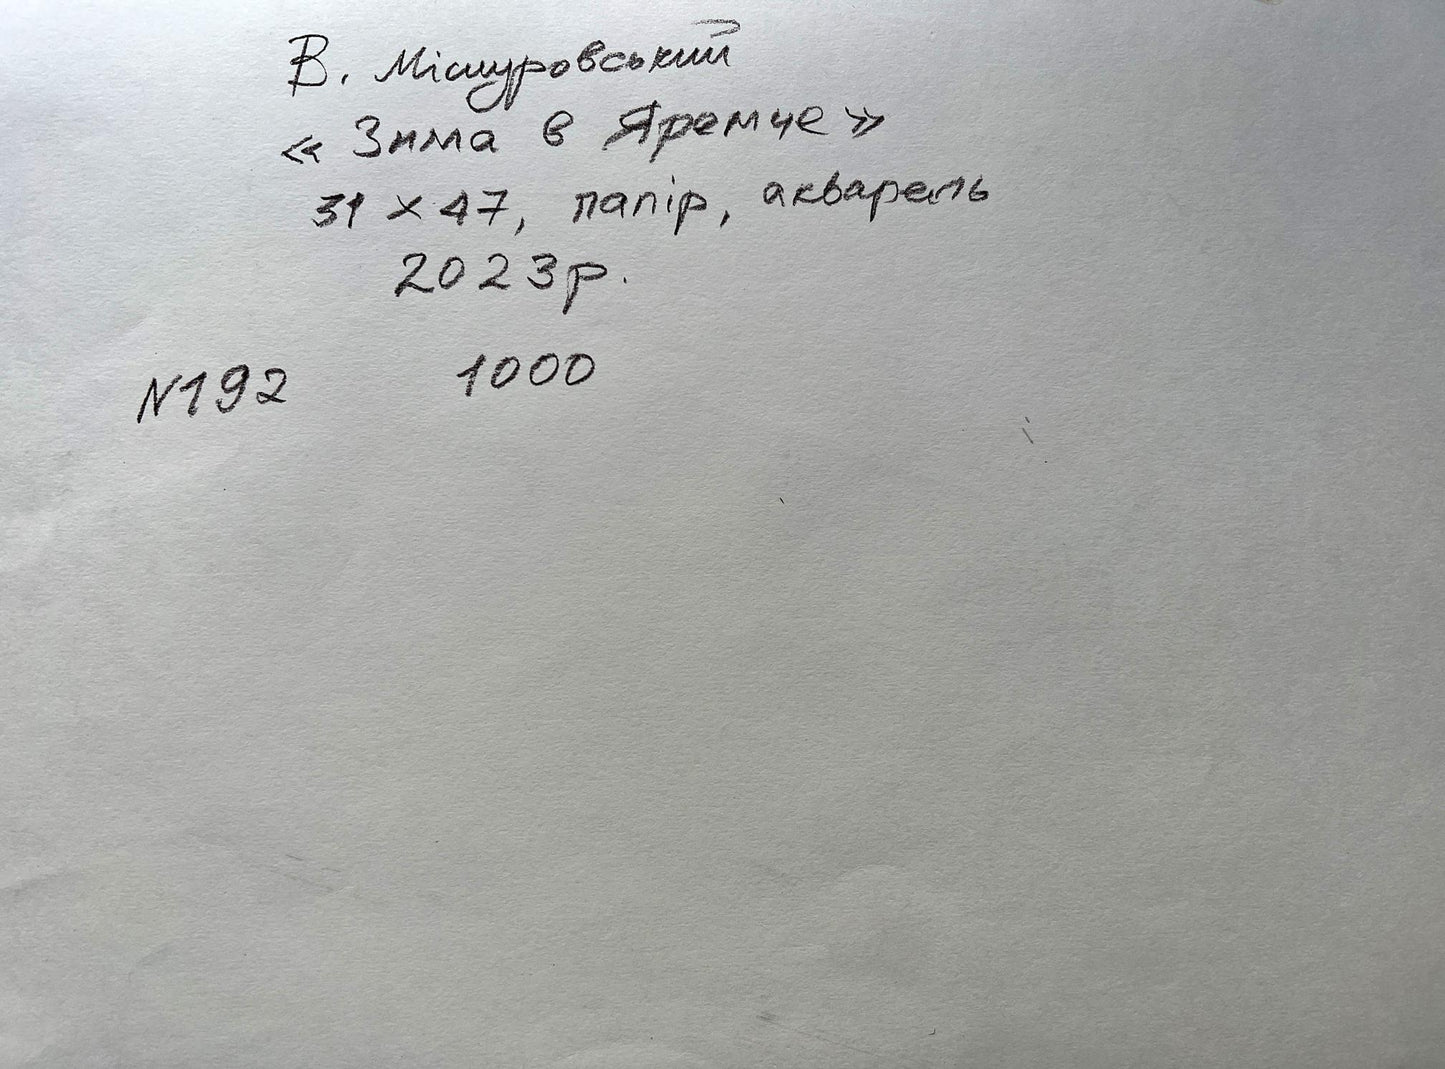 В. Мішуровський
« Зима в Яремче »
31 х 47, папір, акварель
2023р.
N192 1000